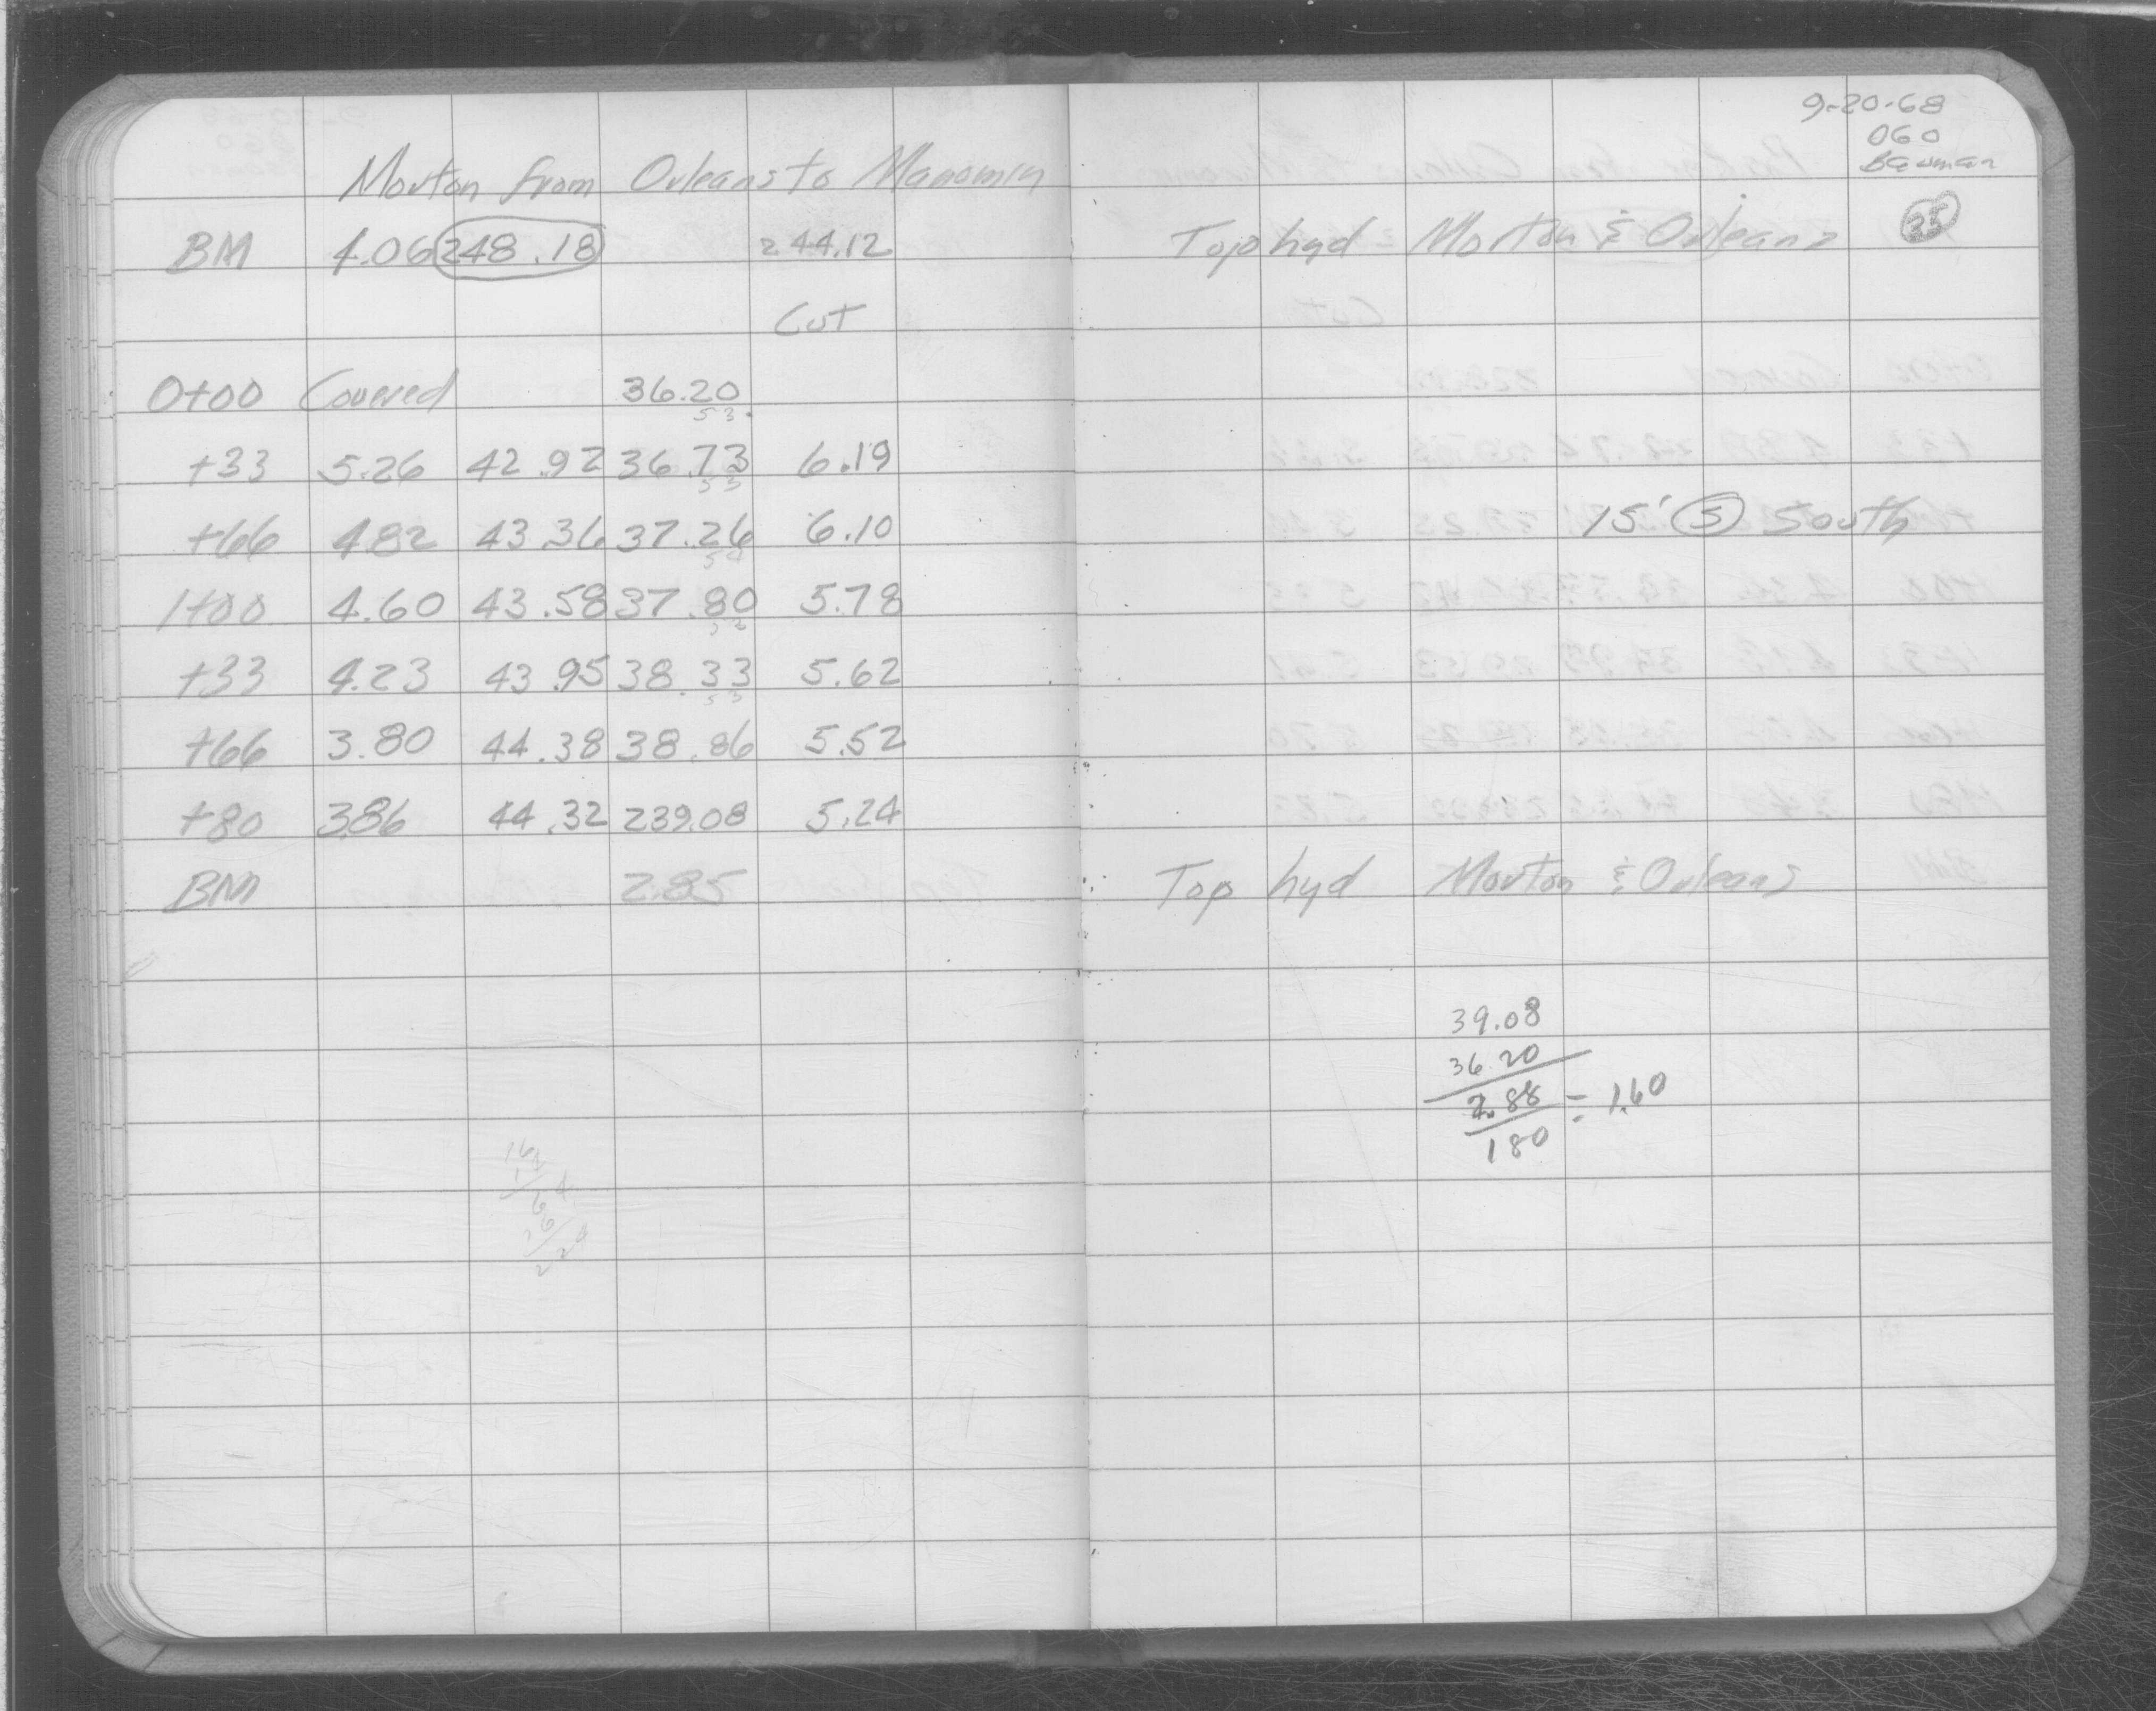 Morton from Orleans to Manomin
BM 4.06 248.18 244.12
Cut
0+00 Covered 36.20
53
+33 5.26 42.92 36.73 6.19
53
+66 4.82 43.36 37.26 6.10
54
1+00 4.60 43.58 37.80 5.78
53
+33 4.23 43.95 38.33 5.62
53
+66 3.80 44.38 38.86 5.52
+80 3.86 44.32 239.08 5.24
BM 2.85
9-20-68
060
Bauman
25
Top hyd Morton & Orleans
15' S South
Top hyd Morton & Orleans
39.08
36.20
2.88 = 1.60
180